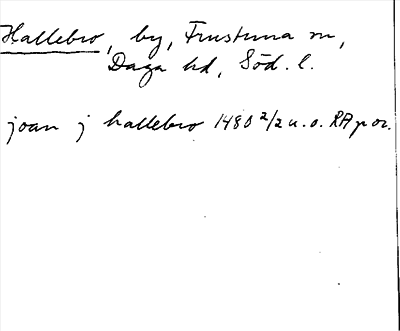 Hallebro, by, Frustuna sn,
Daga hd, Söd. l.
joan j hallebro 1480 2/2 u.o. RAp or.